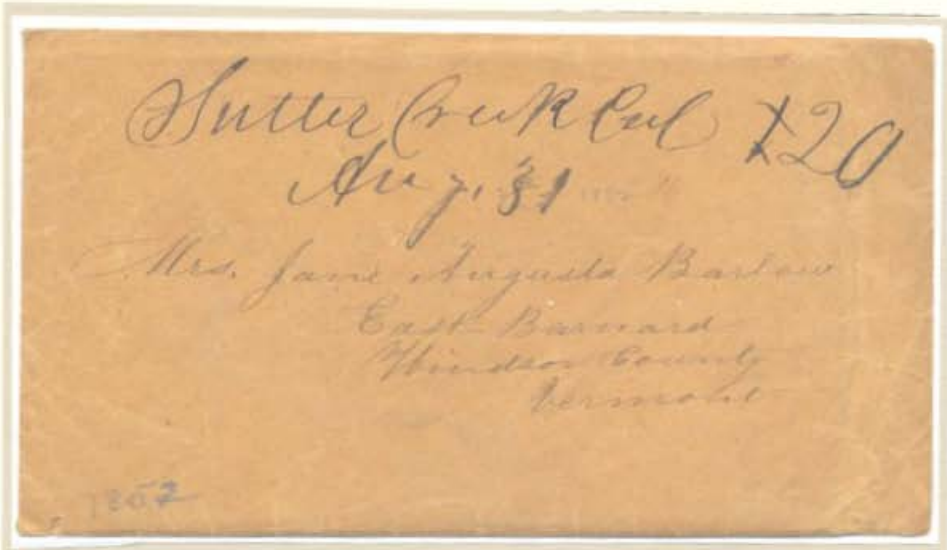 Sutter Creek Cal X20
Aug. 31
Mrs. Jane Augusta Barlow
East Barnard
Windsor County
Vermont
1852